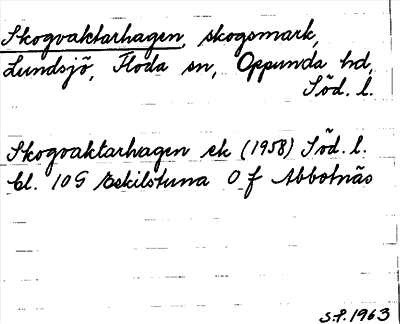 Skogvaktarhagen, skogsmark,
Lundsjö, Floda sn, Oppunda hd,
Söd. l.
Skogvaktarhagen ek (1958) Söd. l.
bl. 10G Eskilstuna 0 f Abbotnäs
S.P. 1963